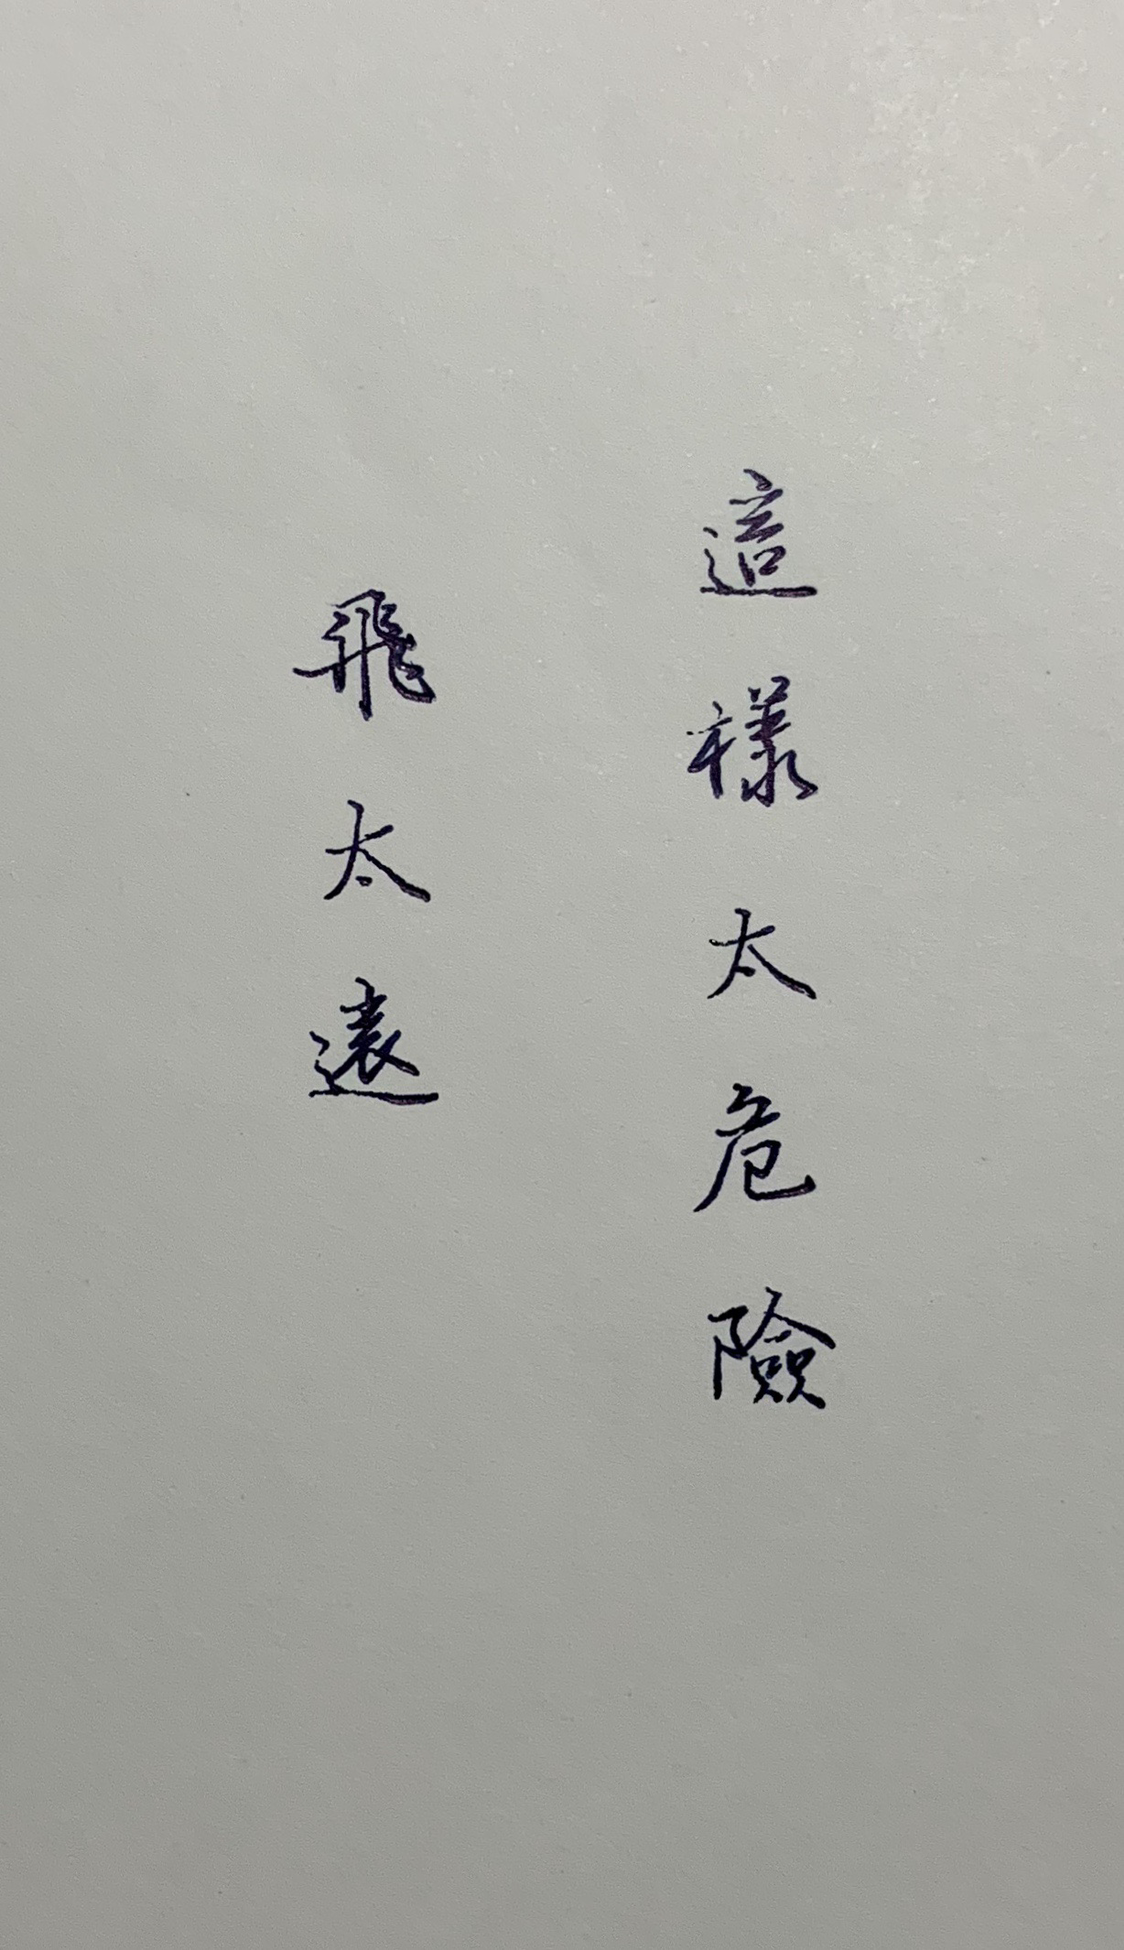 這樣太危險
飛太遠